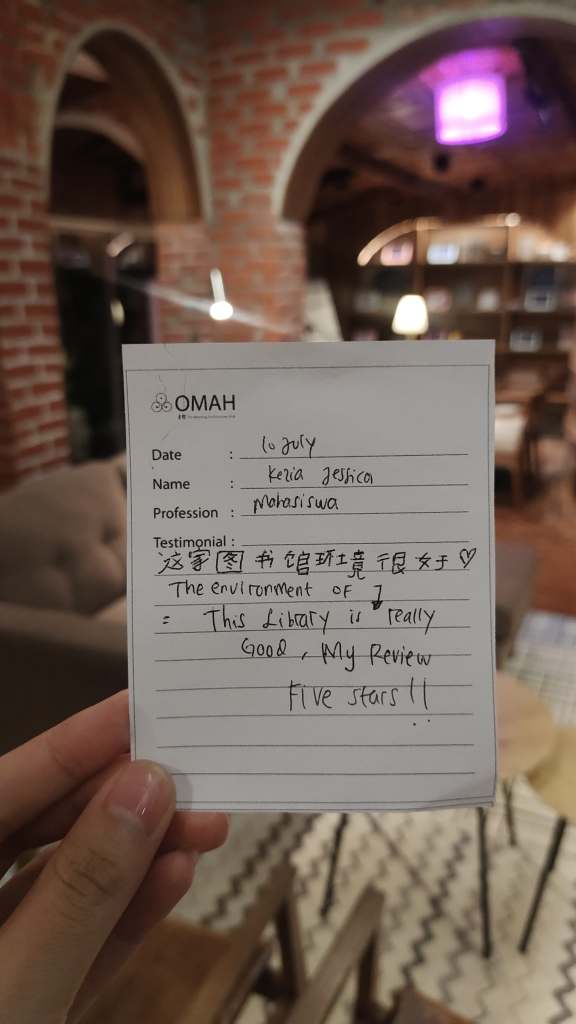 OMAH
Date : 10 July
Name : Kezia Jessica
Profession : Mahasiswa
Testimonial :
这家图书馆环境很好♡
The environment of
= This Library is really
Good, My Review
Five stars!!